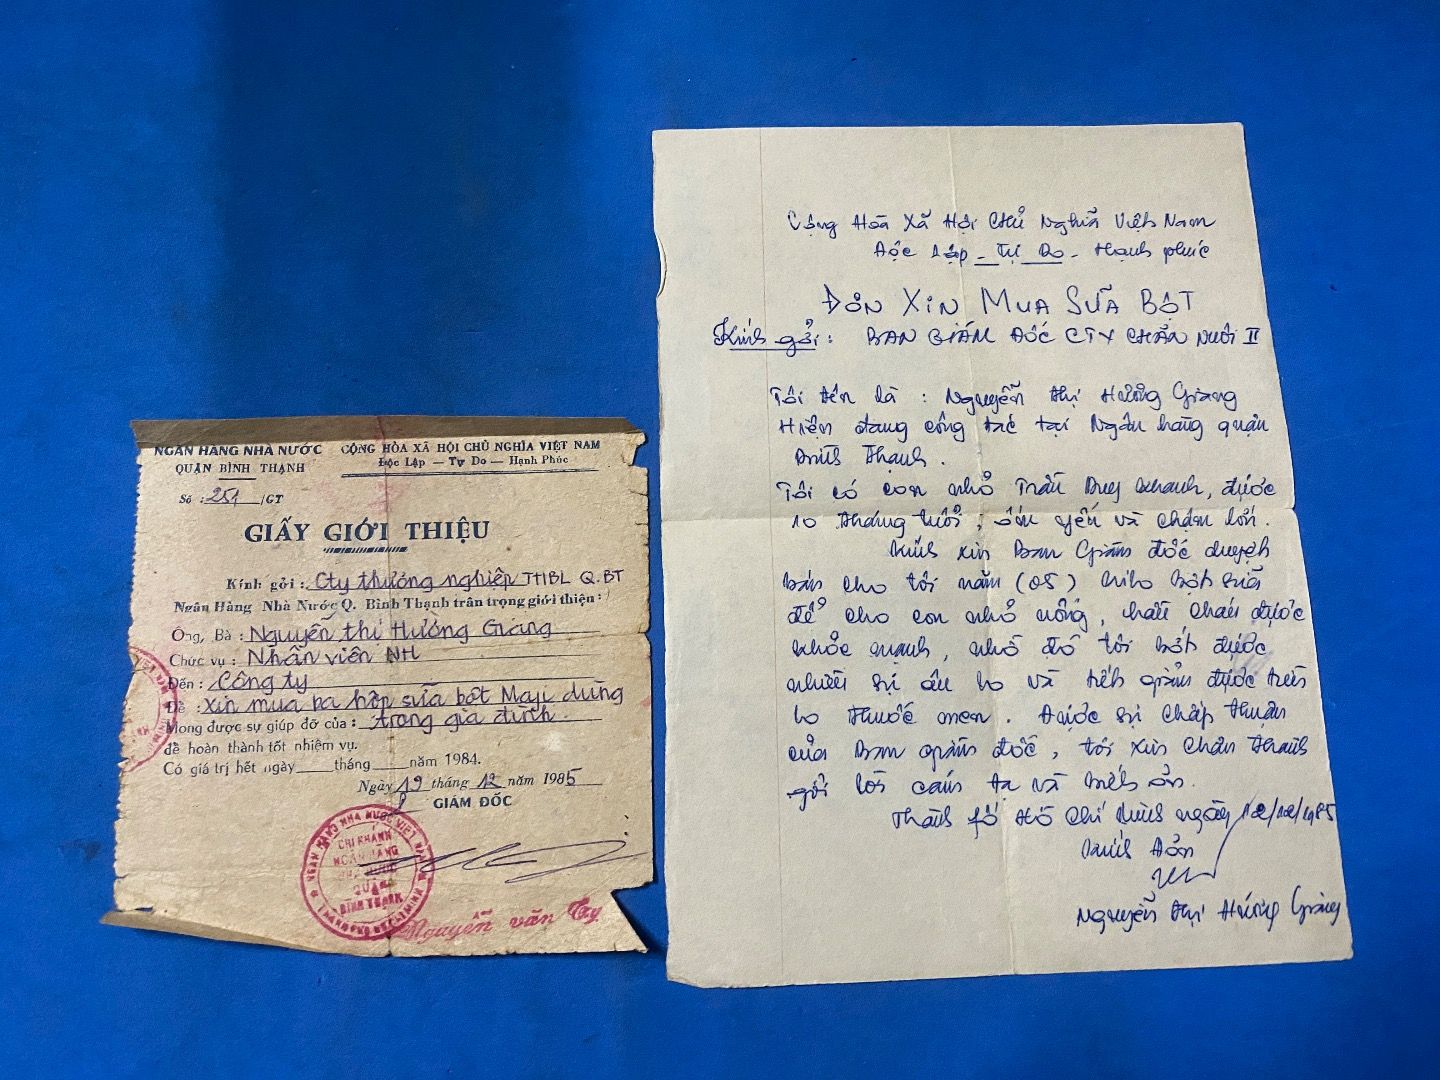 NGÂN HÀNG NHÀ NƯỚC
QUẬN BÌNH THẠNH
CỘNG HÒA XÃ HỘI CHỦ NGHĨA VIỆT NAM
Độc Lập — Tự Do — Hạnh Phúc
Số : 251 /GT
GIẤY GIỚI THIỆU
Kính gởi : Cty thương nghiệp THBL Q.BT
Ngân Hàng Nhà Nước Q. Bình Thạnh trân trọng giới thiệu :
Ông, Bà : Nguyễn thị Hương Giang
Chức vụ : Nhân viên NH
Đến : Công ty
Để : Xin mua ba hộp sữa bột Maji dùng
Mong được sự giúp đỡ của : trong gia đình.
để hoàn thành tốt nhiệm vụ.
Có giá trị hết ngày tháng năm 1984.
Ngày 19 tháng 12 năm 1985
GIÁM ĐỐC
NGÂN HÀNG NHÀ NƯỚC VIỆT NAM
CHI NHÁNH
NGÂN HÀNG
NHÀ NƯỚC
QUẬN
BÌNH THẠNH
THÀNH PHỐ HỒ CHÍ MINH
Nguyễn văn
Cộng Hòa Xã Hội Chủ Nghĩa Việt Nam
Độc lập - Tự Do - Hạnh phúc
ĐƠN XIN MUA SỮA BỘT
Kính gởi : BAN GIÁM ĐỐC CTY CHĂN NUÔI II
Tôi tên là : Nguyễn thị Hương Giang
Hiện đang công tác tại Ngân hàng quận
Bình Thạnh.
Tôi có con nhỏ Trần Duy Khanh, được
10 tháng tuổi, ốm yếu và chậm lớn.
Kính xin Ban Giám đốc duyệt
bán cho tôi năm (05) kilo bột sữa
để cho con nhỏ uống, hầu cháu được
khỏe mạnh, nhờ đó tôi bớt được
nhiều sự âu lo và tiết giảm được tiền
lo thuốc men. Được sự chấp thuận
của Ban giám đốc, tôi xin chân thành
gởi lời cám tạ và biết ơn.
Thành fố Hồ Chí Minh ngày 12/12/1985
Kính đơn
Nguyễn thị Hương Giang